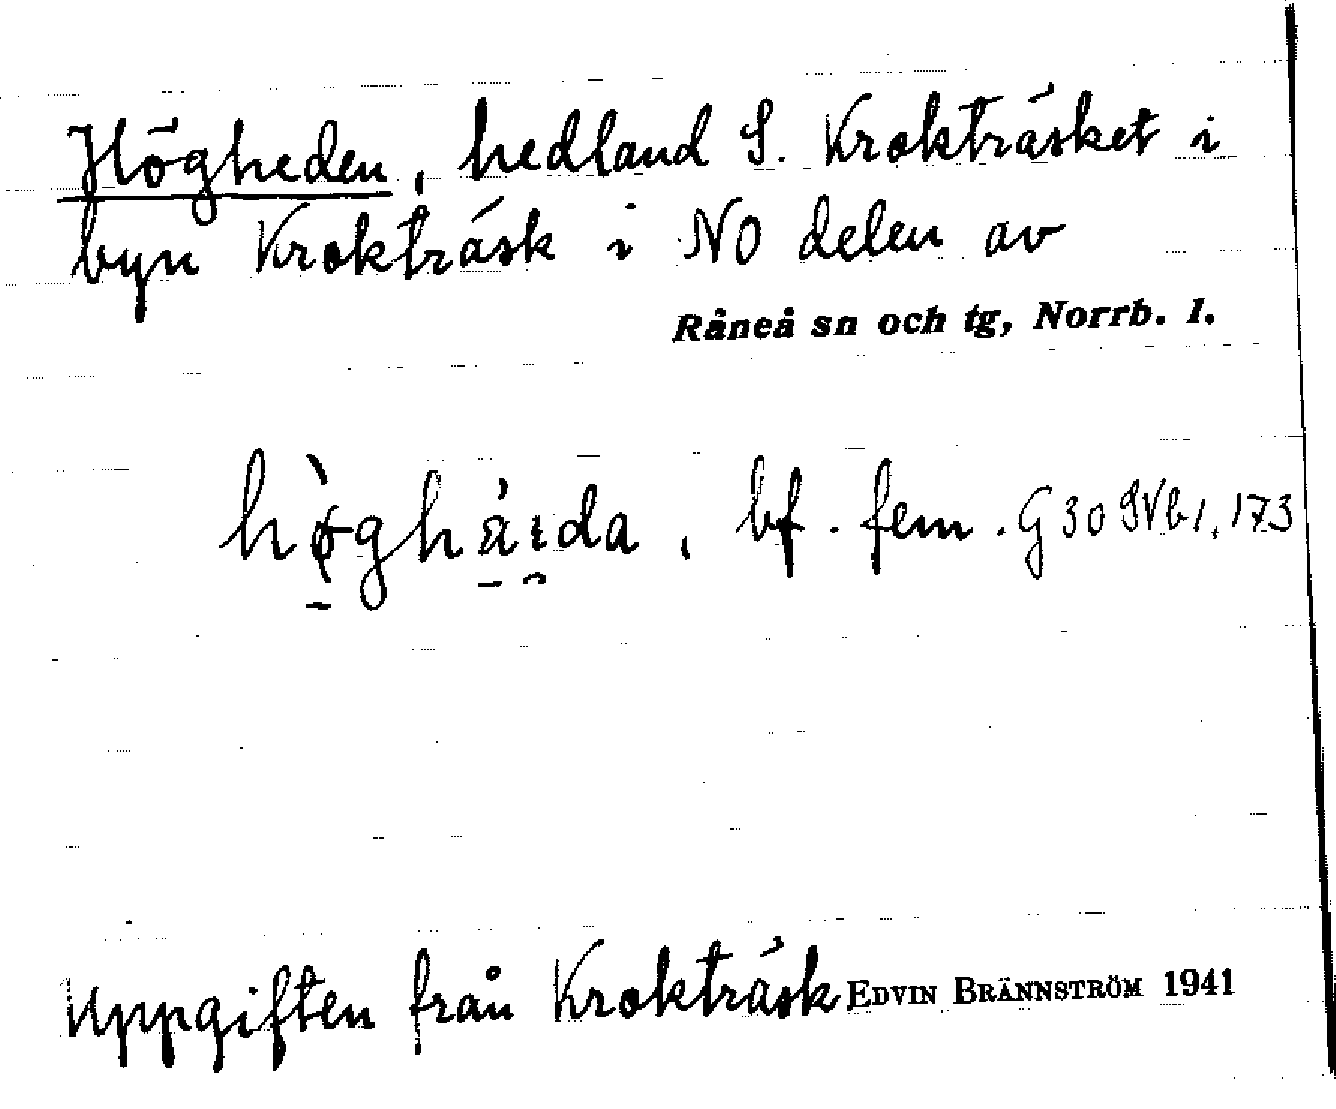 Högheden, hedland S. Krokträsket i
byn Krokträsk i NO delen av
Råneå sn och tg, Norrb. l.
hø̀ghä́ıda, bf. fem. G30 NVb1, 173
Uppgiften från Krokträsk EDVIN BRÄNNSTRÖM 1941